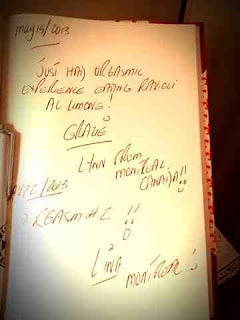 may 15/2013
JUST HAD ORGASMIC
EXPERIENCE EATING RAVIOLI
AL LIMONE!
GRAZE
LYNN FROM
MONTREAL
CANADA!!
/2013
ORGASM #2 !!
LINA
MONTREAL!